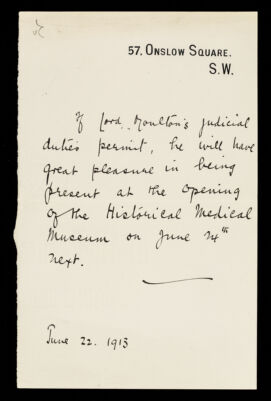 57, ONSLOW SQUARE.
S.W.
If Lord Moulton's judicial
duties permit, he will have
great pleasure in being
present at the opening
of the Historical Medical
Museum on June 24th
next.
June 22. 1913